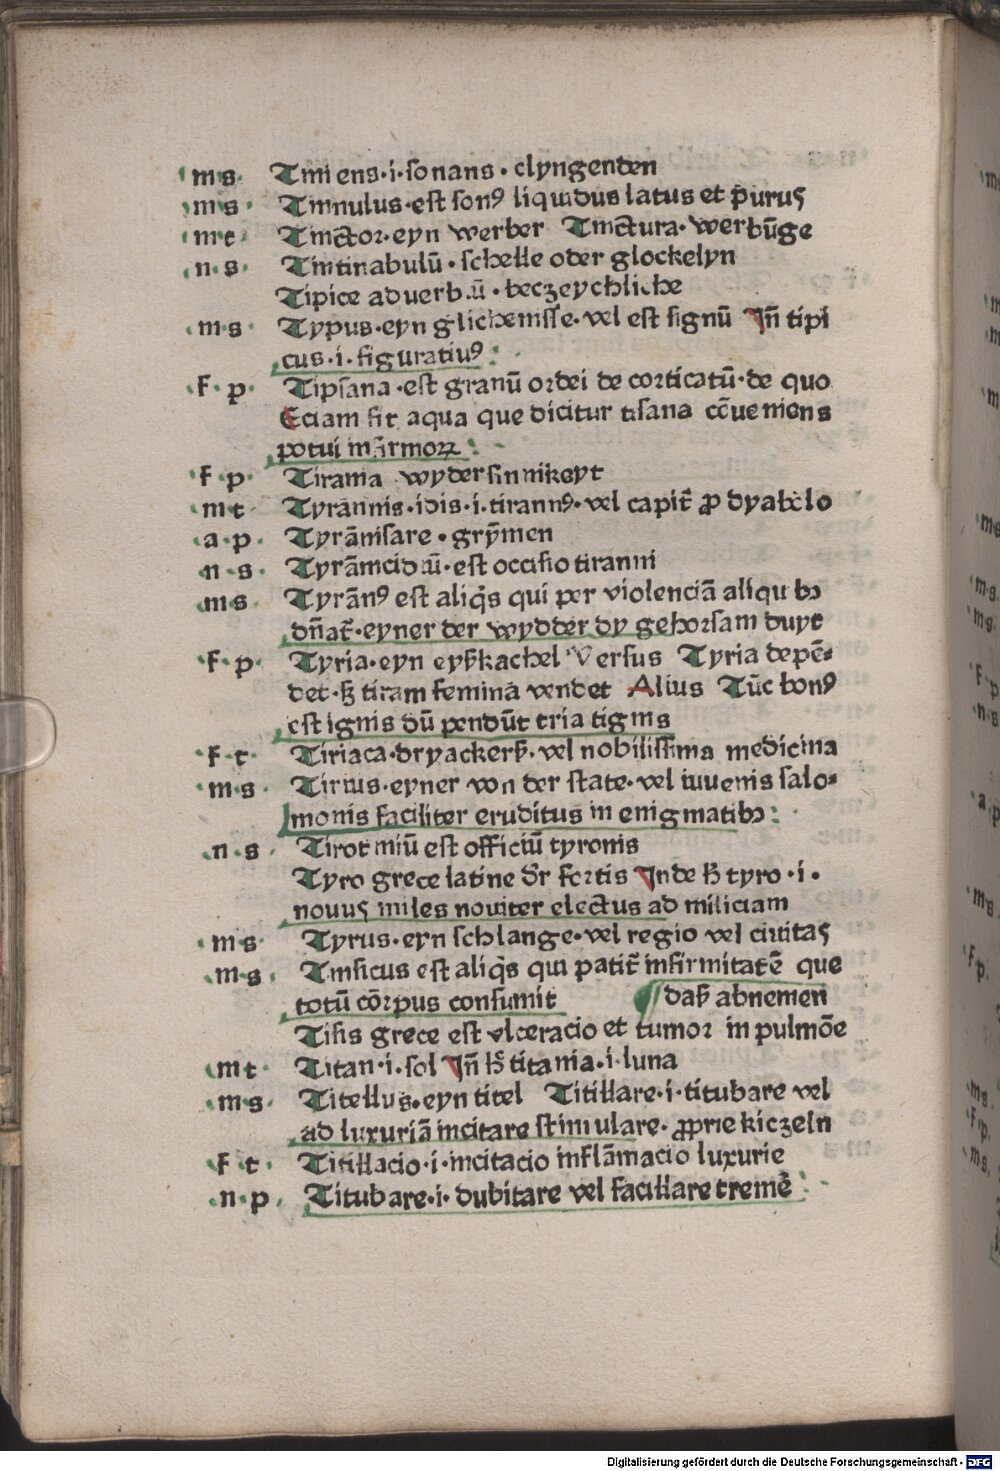 m s Tinniens·i·sonans·clyngenden
m s Tinnulus·est sonꝰ liquidus latus et purus
m t Tinctor·eyn werber Tinctura·werbūge
n s Tintinabulū·schelle oder glockelyn
Tipice adverb.ū·beczeychliche
m s Typus·eyn glichenisse·vel est signū Jn̄ tipi
cus·i·figuratiuꝰ
f p Tipsana·est granū ordei de corticatū·de quo
Eciam fit aqua que dicitur tisana cōueniens
potui infirmoꝝ
f p Tirama wydersinnikeyt
m t Tyrannis·idis·i·tirannꝰ·vel capit̄ ꝓ dyabelo
a p Tyrānisare·grȳmen
n s Tyrānicidiū·est occisio tiranni
m s Tyrānꝰ est aliqs̄ qui per violenciā aliqubꝫ
dn̄at̄·eyner der wydder dy gehorsam duyt
f p Tyria·eyn eyßkachel Versus Tyria depē-
det·ꝫ tiram femina vendet Alius Tūc bonꝰ
est ignis dū pendūt tria tignis
f t Tiriaca·dryackerß·vel nobilissima medicina
m s Tirius·eyner von der state·vel iuvenis salo-
monis faciliter eruditus in enigmatibꝫ
n s Tirotiniū est officiū tyronis
Tyro grece latine dr̄ fortis Jnde ꝫ tyro·i·
nouus miles noviter electus ad miliciam
m s Tyrus·eyn schlange·vel regio vel civitas
m s Tinsicus est aliqs̄ qui patit̄ infirmitatē que
totū cōrpus consumit daß abnemen
Tisis grece est vlceracio et tumor in pulmōe
m t Titan·i·sol Jn̄ ꝫ titania·i·luna
m s Titellus·eyn titel Titillare·i·titubare vel
ad luxuriā incitare stimulare·ꝓprie kiczeln
f t Titillacio·i·incitacio inflāmacio luxurie
n p Titubare·i·dubitare vel facillare tremē
Digitalisierung gefördert durch die Deutsche Forschungsgemeinschaft - DFG